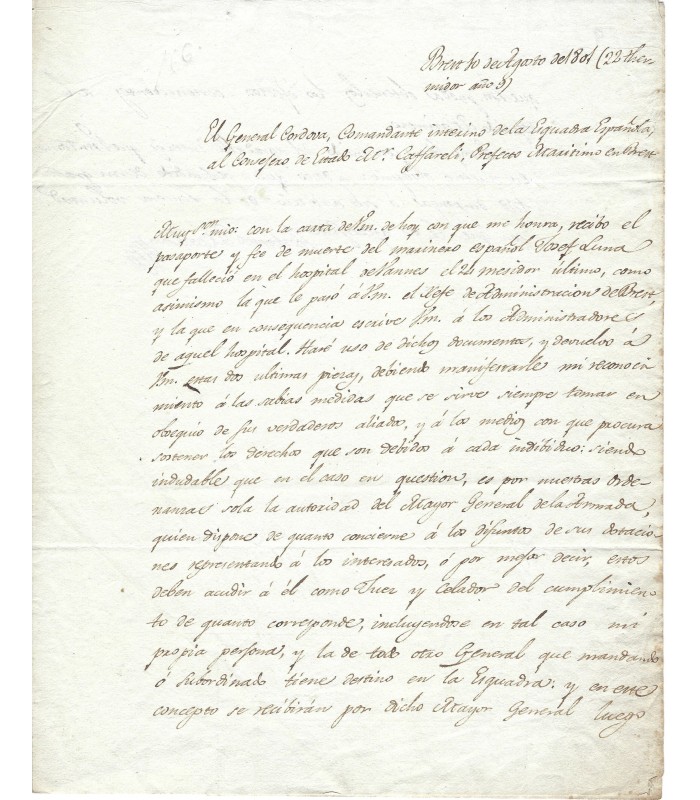 Brest 10 de Agosto de 1801 (22 ther-
midor año 9)
El General Cordova, Comandante interino de la Esquadra Española,
al Consejero de Estado Mr. Caffareli, Prefecto Maritimo en Brest
Muy Sor. mio: con la carta de Vm. de hoy con que me honra, recibo el
pasaporte y fee de muerte del marinero español Josef Luna
que falleció en el hospital de Vannes el 24 mesidor último, como
asimismo la que le pasó á Vm. el Xefe de Administracion de Brest,
y la que en consequencia escrive Vm. á los Administradores
de aquel hospital. Haré uso de dichos documentos, y devuelvo á
Vm. estas dos ultimas piezas, debiendo manifestarle mi reconoci-
miento á las sabias medidas que se sirve siempre tomar en
obsequio de sus verdaderos aliados, y á los medios con que procura
sostener los derechos que son debidos á cada indibiduo: siendo
indudable que en el caso en question, es por nuestras Orde-
nanzas sola la autoridad del Mayor General de la Armada,
quien dispone de quanto concierne á los difuntos de sus dotacio-
nes representando á los interesados, ó por mejor decir, estos
deben acudir á él como Juez y Celador del cumplimien-
to de quanto corresponde, incluyendose en tal caso mi
propia persona, y la de todo otro General que mandando
ó subordinado tiene destino en la Esquadra: y en este
concepto se recibirán por dicho Mayor General luego